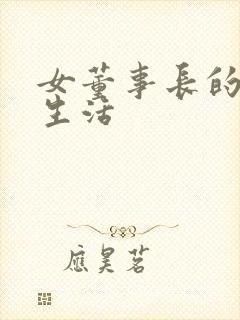 女董事長的
生活
應昊茗